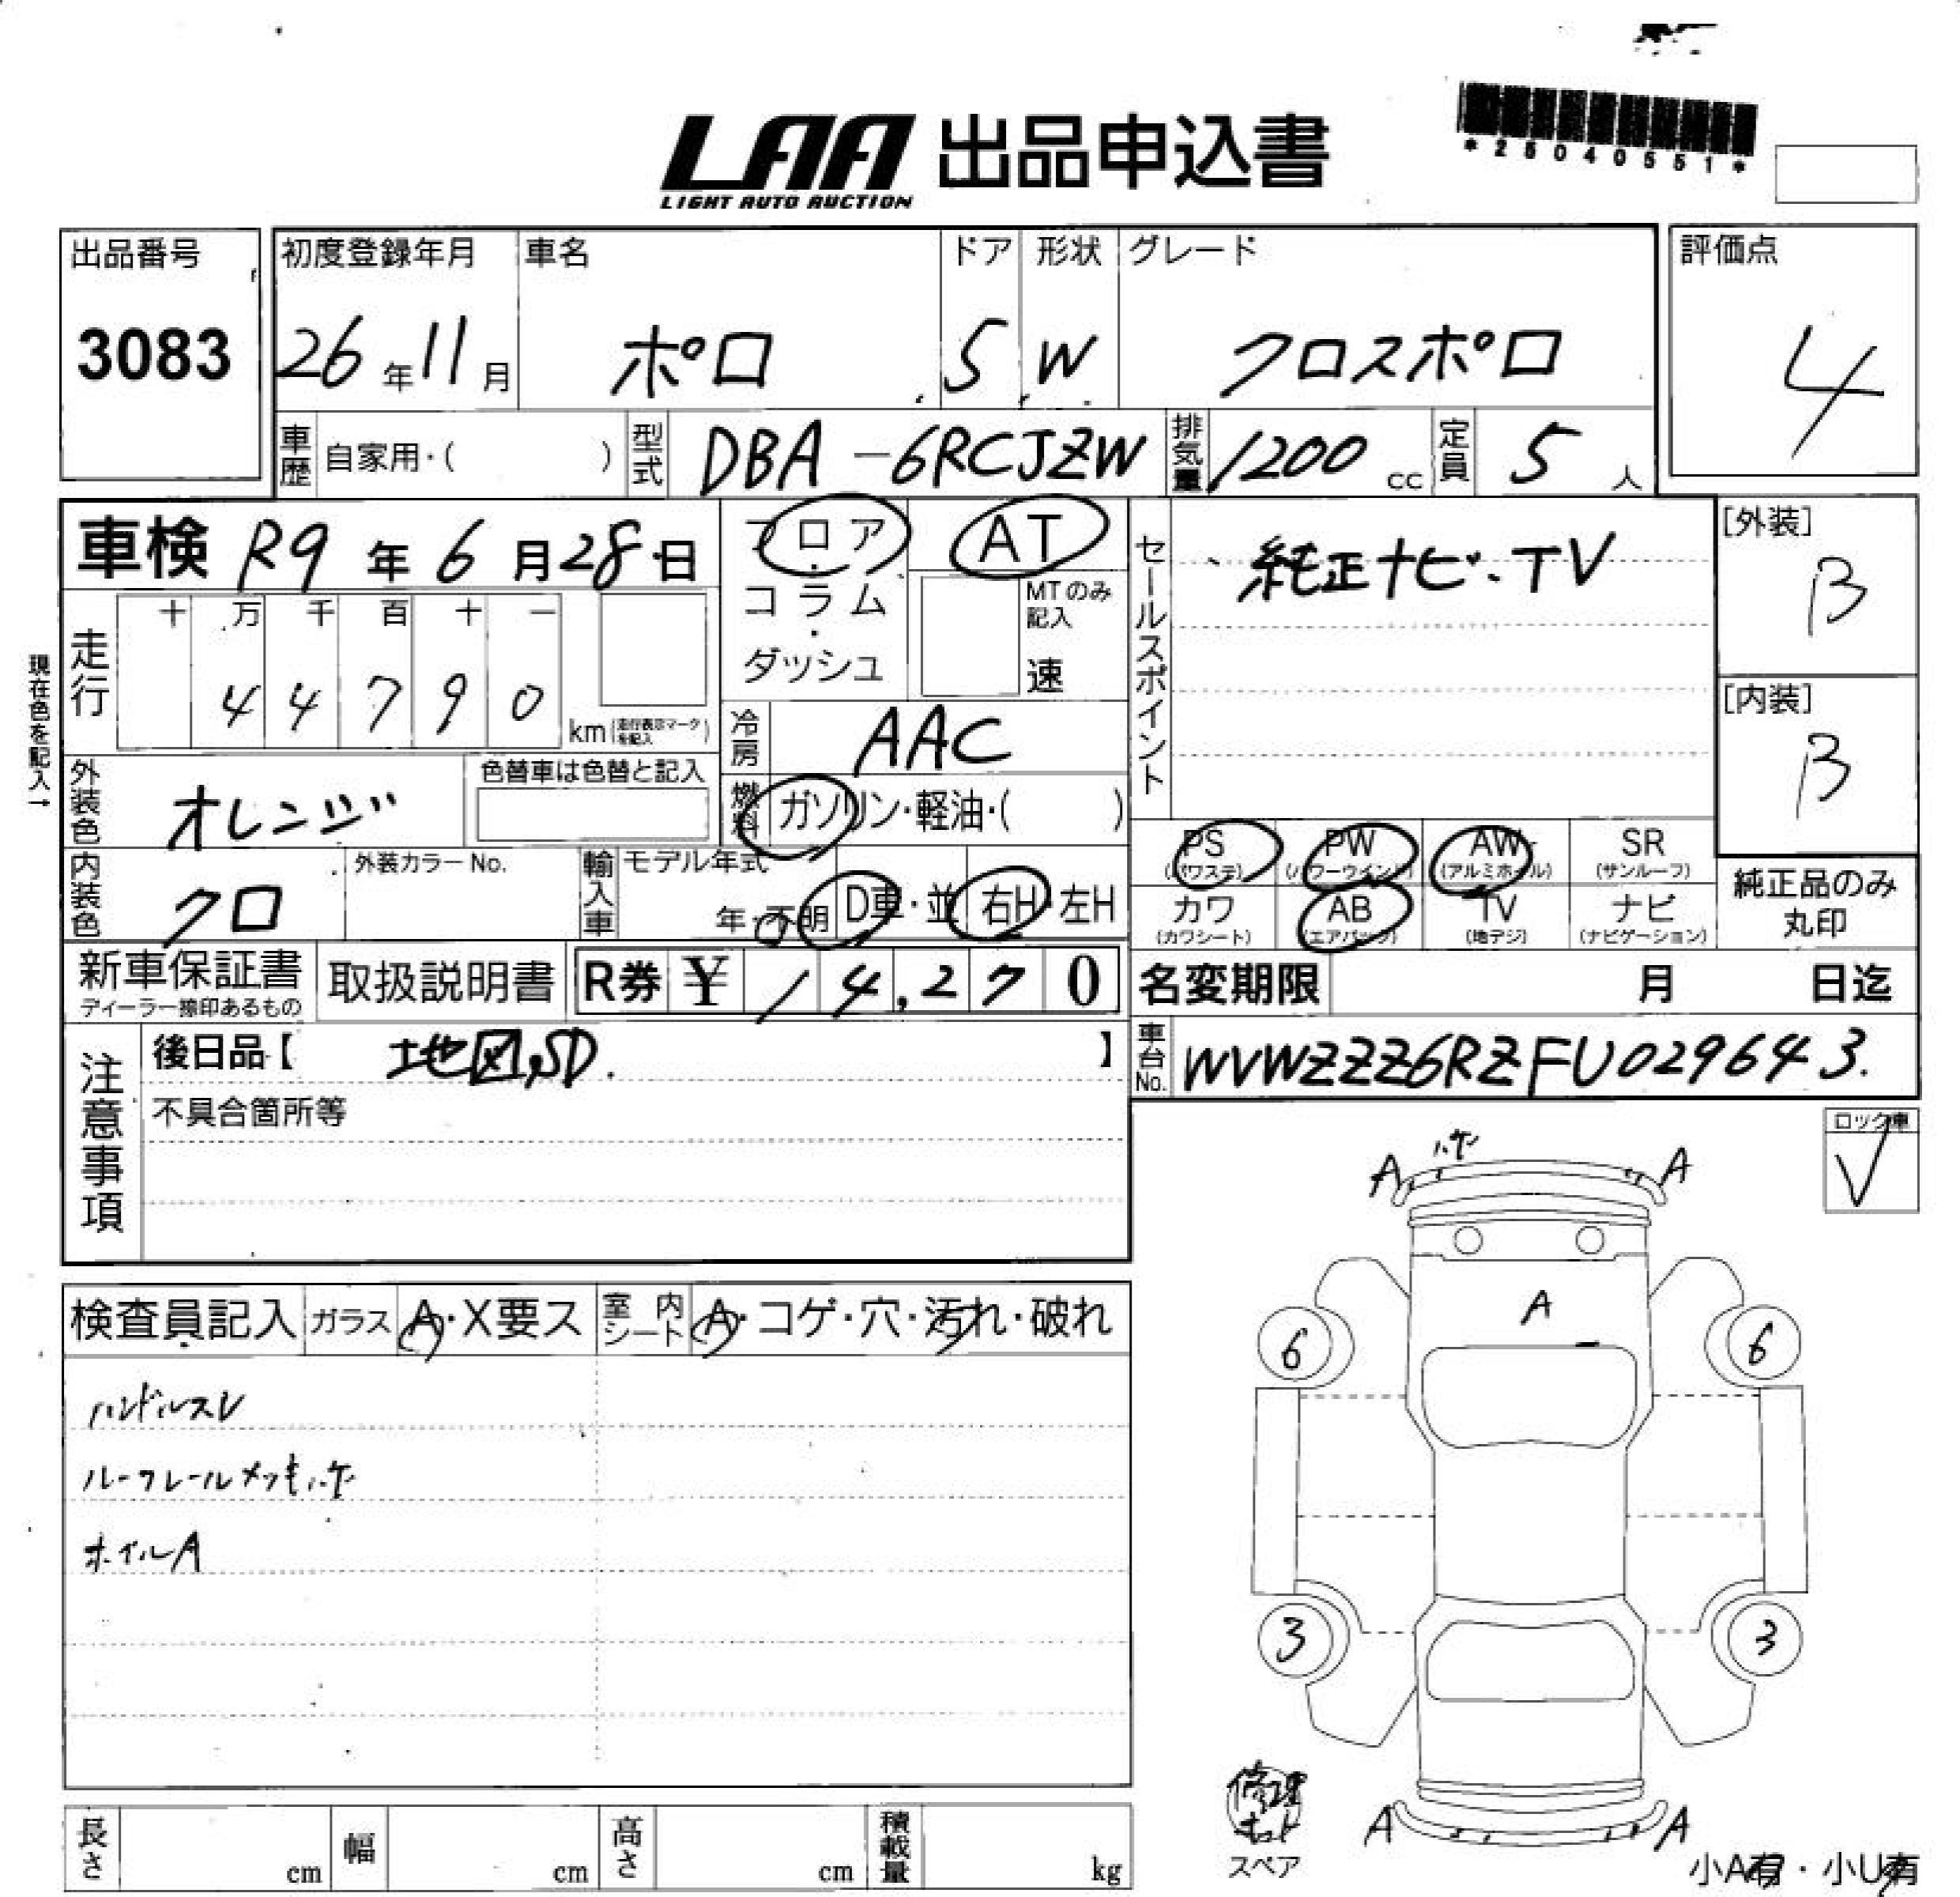 LAA 出品申込書
LIGHT AUTO AUCTION
*25040551*
出品番号 初度登録年月 車名 ドア 形状 グレード 評価点
3083 26年11月 ポロ 5 W クロスポロ 4
車歴 自家用・( ) 型式 DBA-6RCJZW 排気量 1200 cc 定員 5 人
車検 R9年6月28日 フロア AT セールスポイント 純正ナビ・TV [外装]
B
・コラム MTのみ記入
・ダッシュ 速
現在色を記入→
走行 十 万 千 百 十 一
4 4 7 9 0 km(走行表示マークを記入)
[内装]
B
冷房 AAC
外装色 オレンジ 色替車は色替と記入 燃料 ガソリン・軽油・( )
PS PW AW SR
(パワステ) (パワーウインド) (アルミホイル) (サンルーフ)
内装色 クロ 外装カラーNo. 輸入車 モデル年式 年・不明 D車・並 右H・左H
カワ AB TV ナビ 純正品のみ丸印
(カワシート) (エアバック) (地デジ) (ナビゲーション)
新車保証書 取扱説明書 R券 ¥ 14,270 名変期限 月 日迄
ディーラー捺印あるもの
注意事項 後日品【 地図,SD. 】 車台No. WVWZZZ6RZFU029643.
不具合箇所等
ロック車
✓
ハケ
A A
検査員記入 ガラス A・X要ス 室内シート A・コゲ・穴・汚れ・破れ
A
6 6
ハンドルスレ
ルーフレールメッキハゲ
ホイルA
3 3
修理キット
スペア
A A
長さ cm 幅 cm 高さ cm 積載量 kg
小A有・小U有